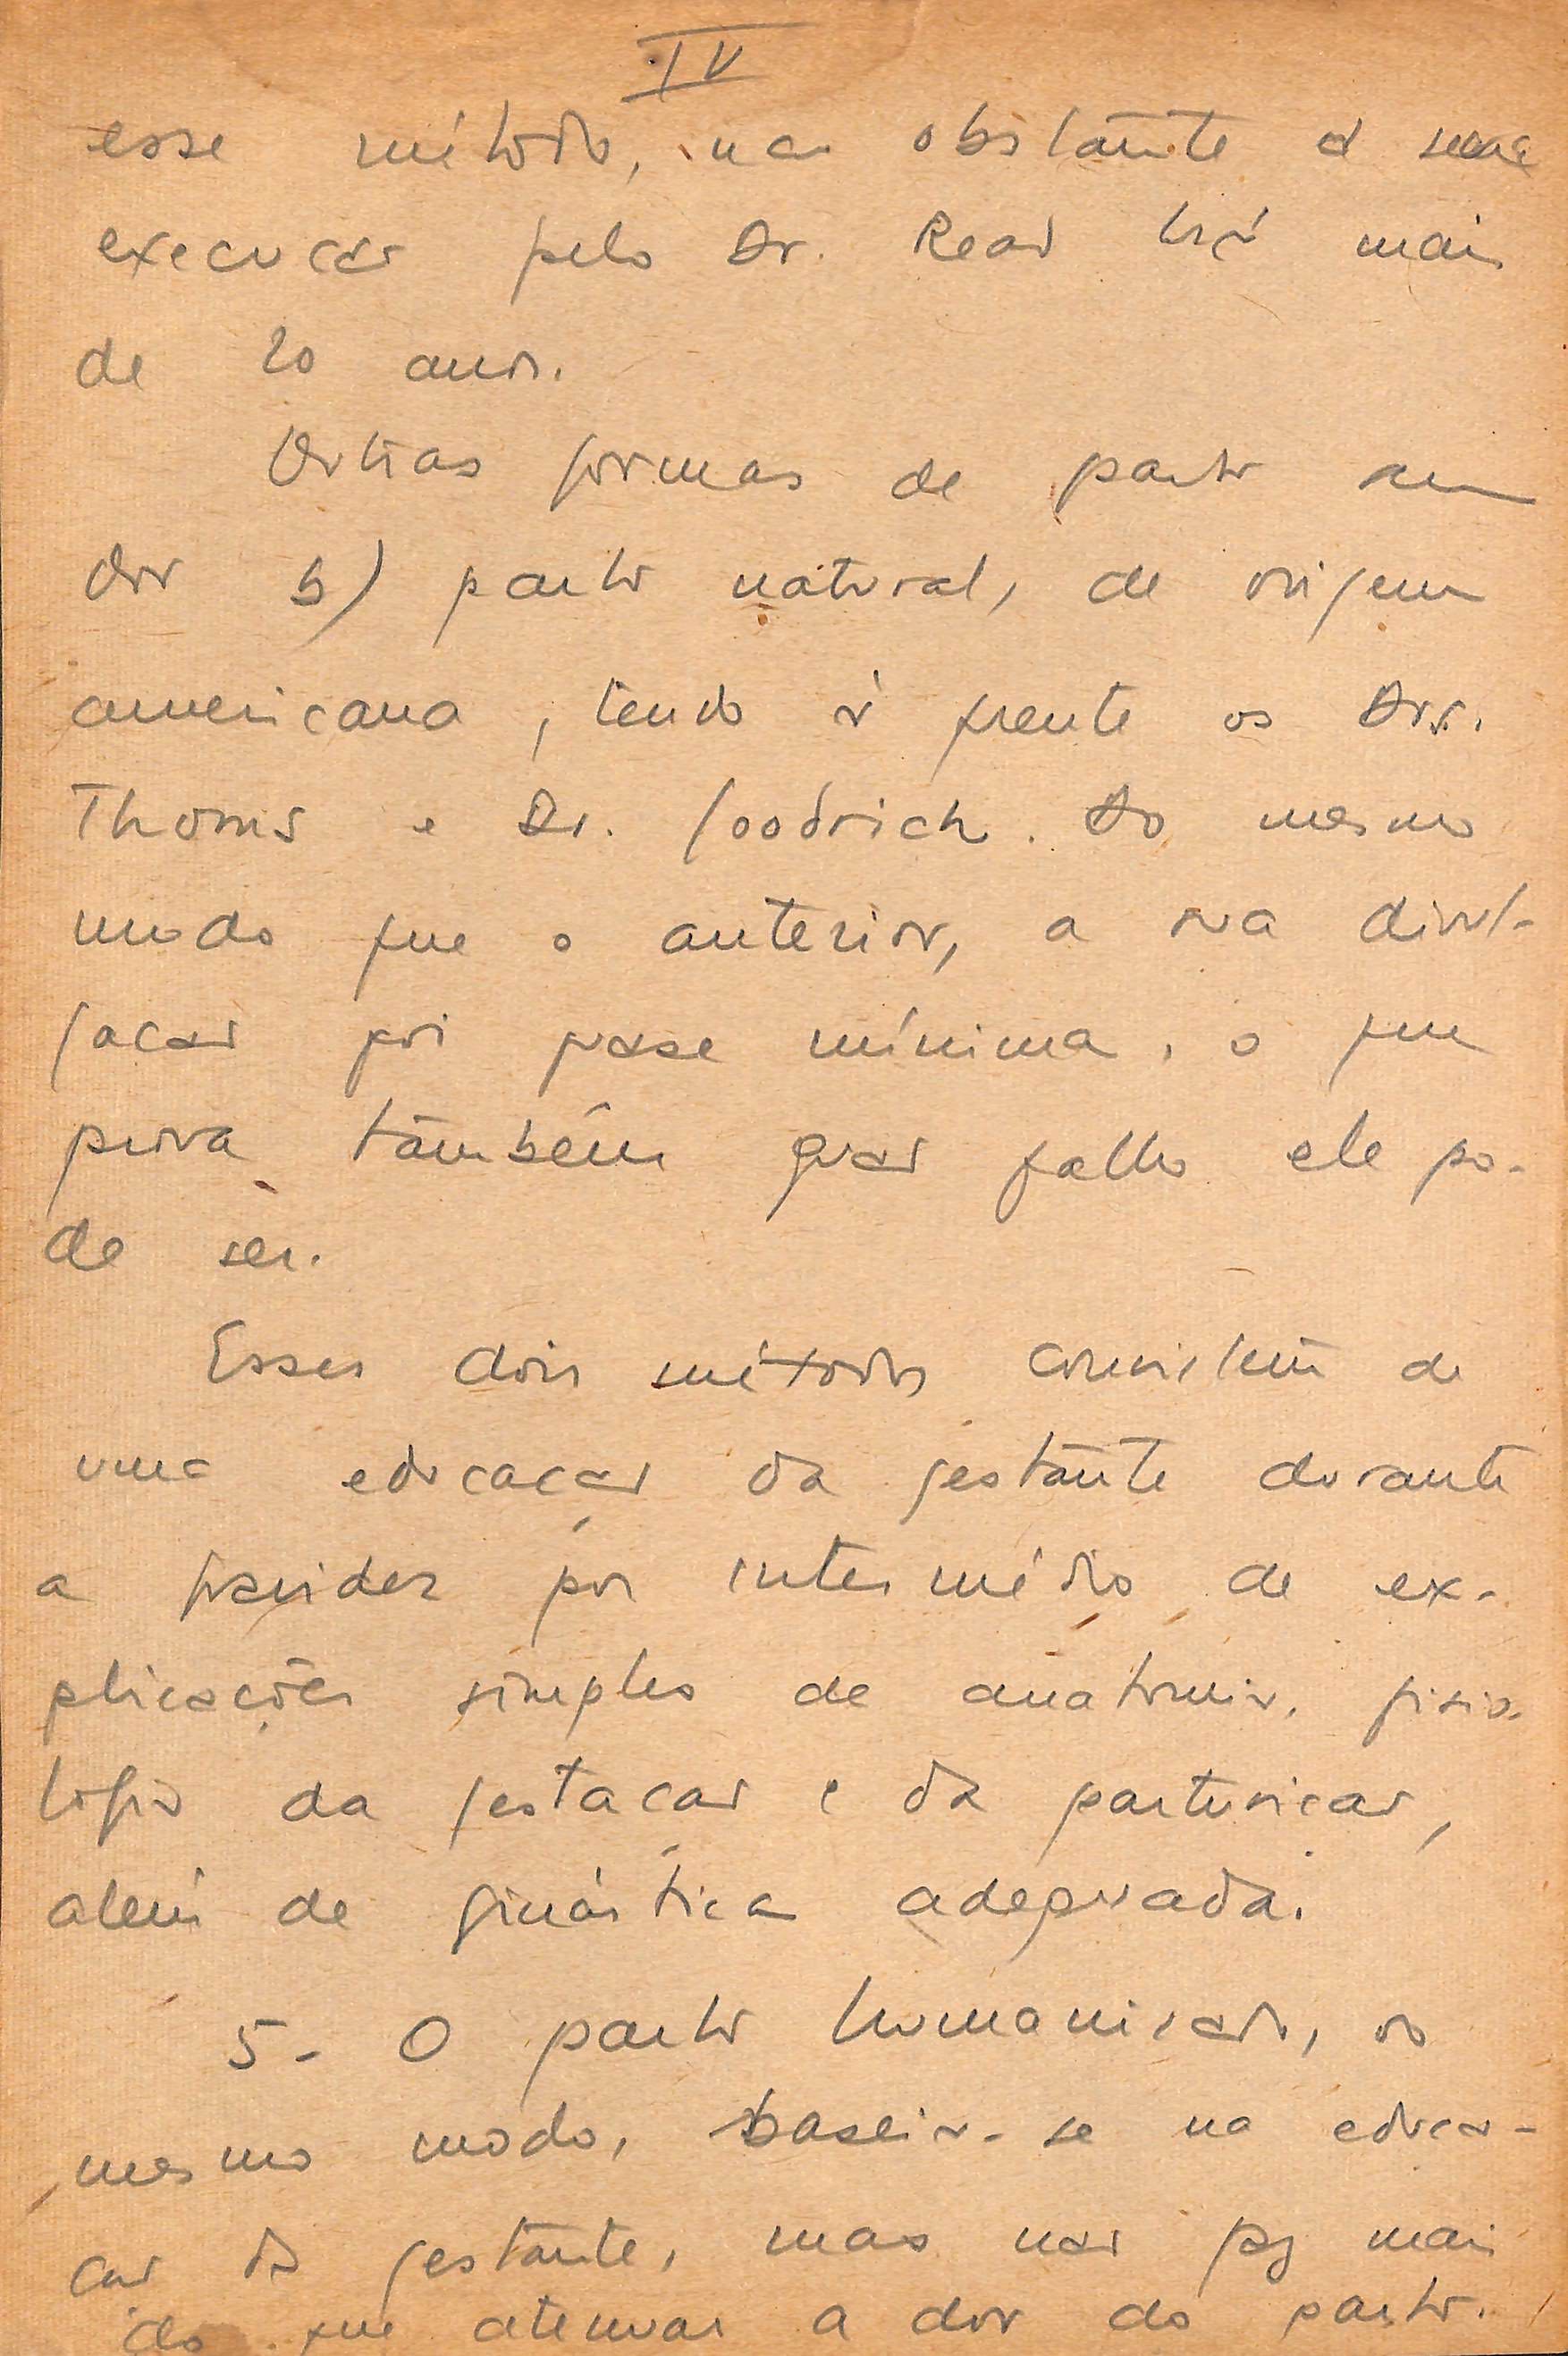 IV
esse método, não obstante a sua
execução pelo Dr. Read há mais
de 20 anos.
Outras formas de parto sem
dor b) parto natural, de origem
americana, tendo à frente os Drs.
Thoms e Dr. Goodrich. Do mesmo
modo que o anterior, a sua divul-
gação foi quase mínima, o que
prova também quão falho ele po-
de ser.
Esses dois métodos consistem de
uma educação da gestante durante
a gravidez por intermédio de ex-
plicações simples de anatomia, fisio-
logia da gestação e da parturição,
além de ginástica adequada.
5- O parto humanizado, do
mesmo modo, baseia-se na educa-
ção da gestante, mas não faz mais
do que atenuar a dor do parto.